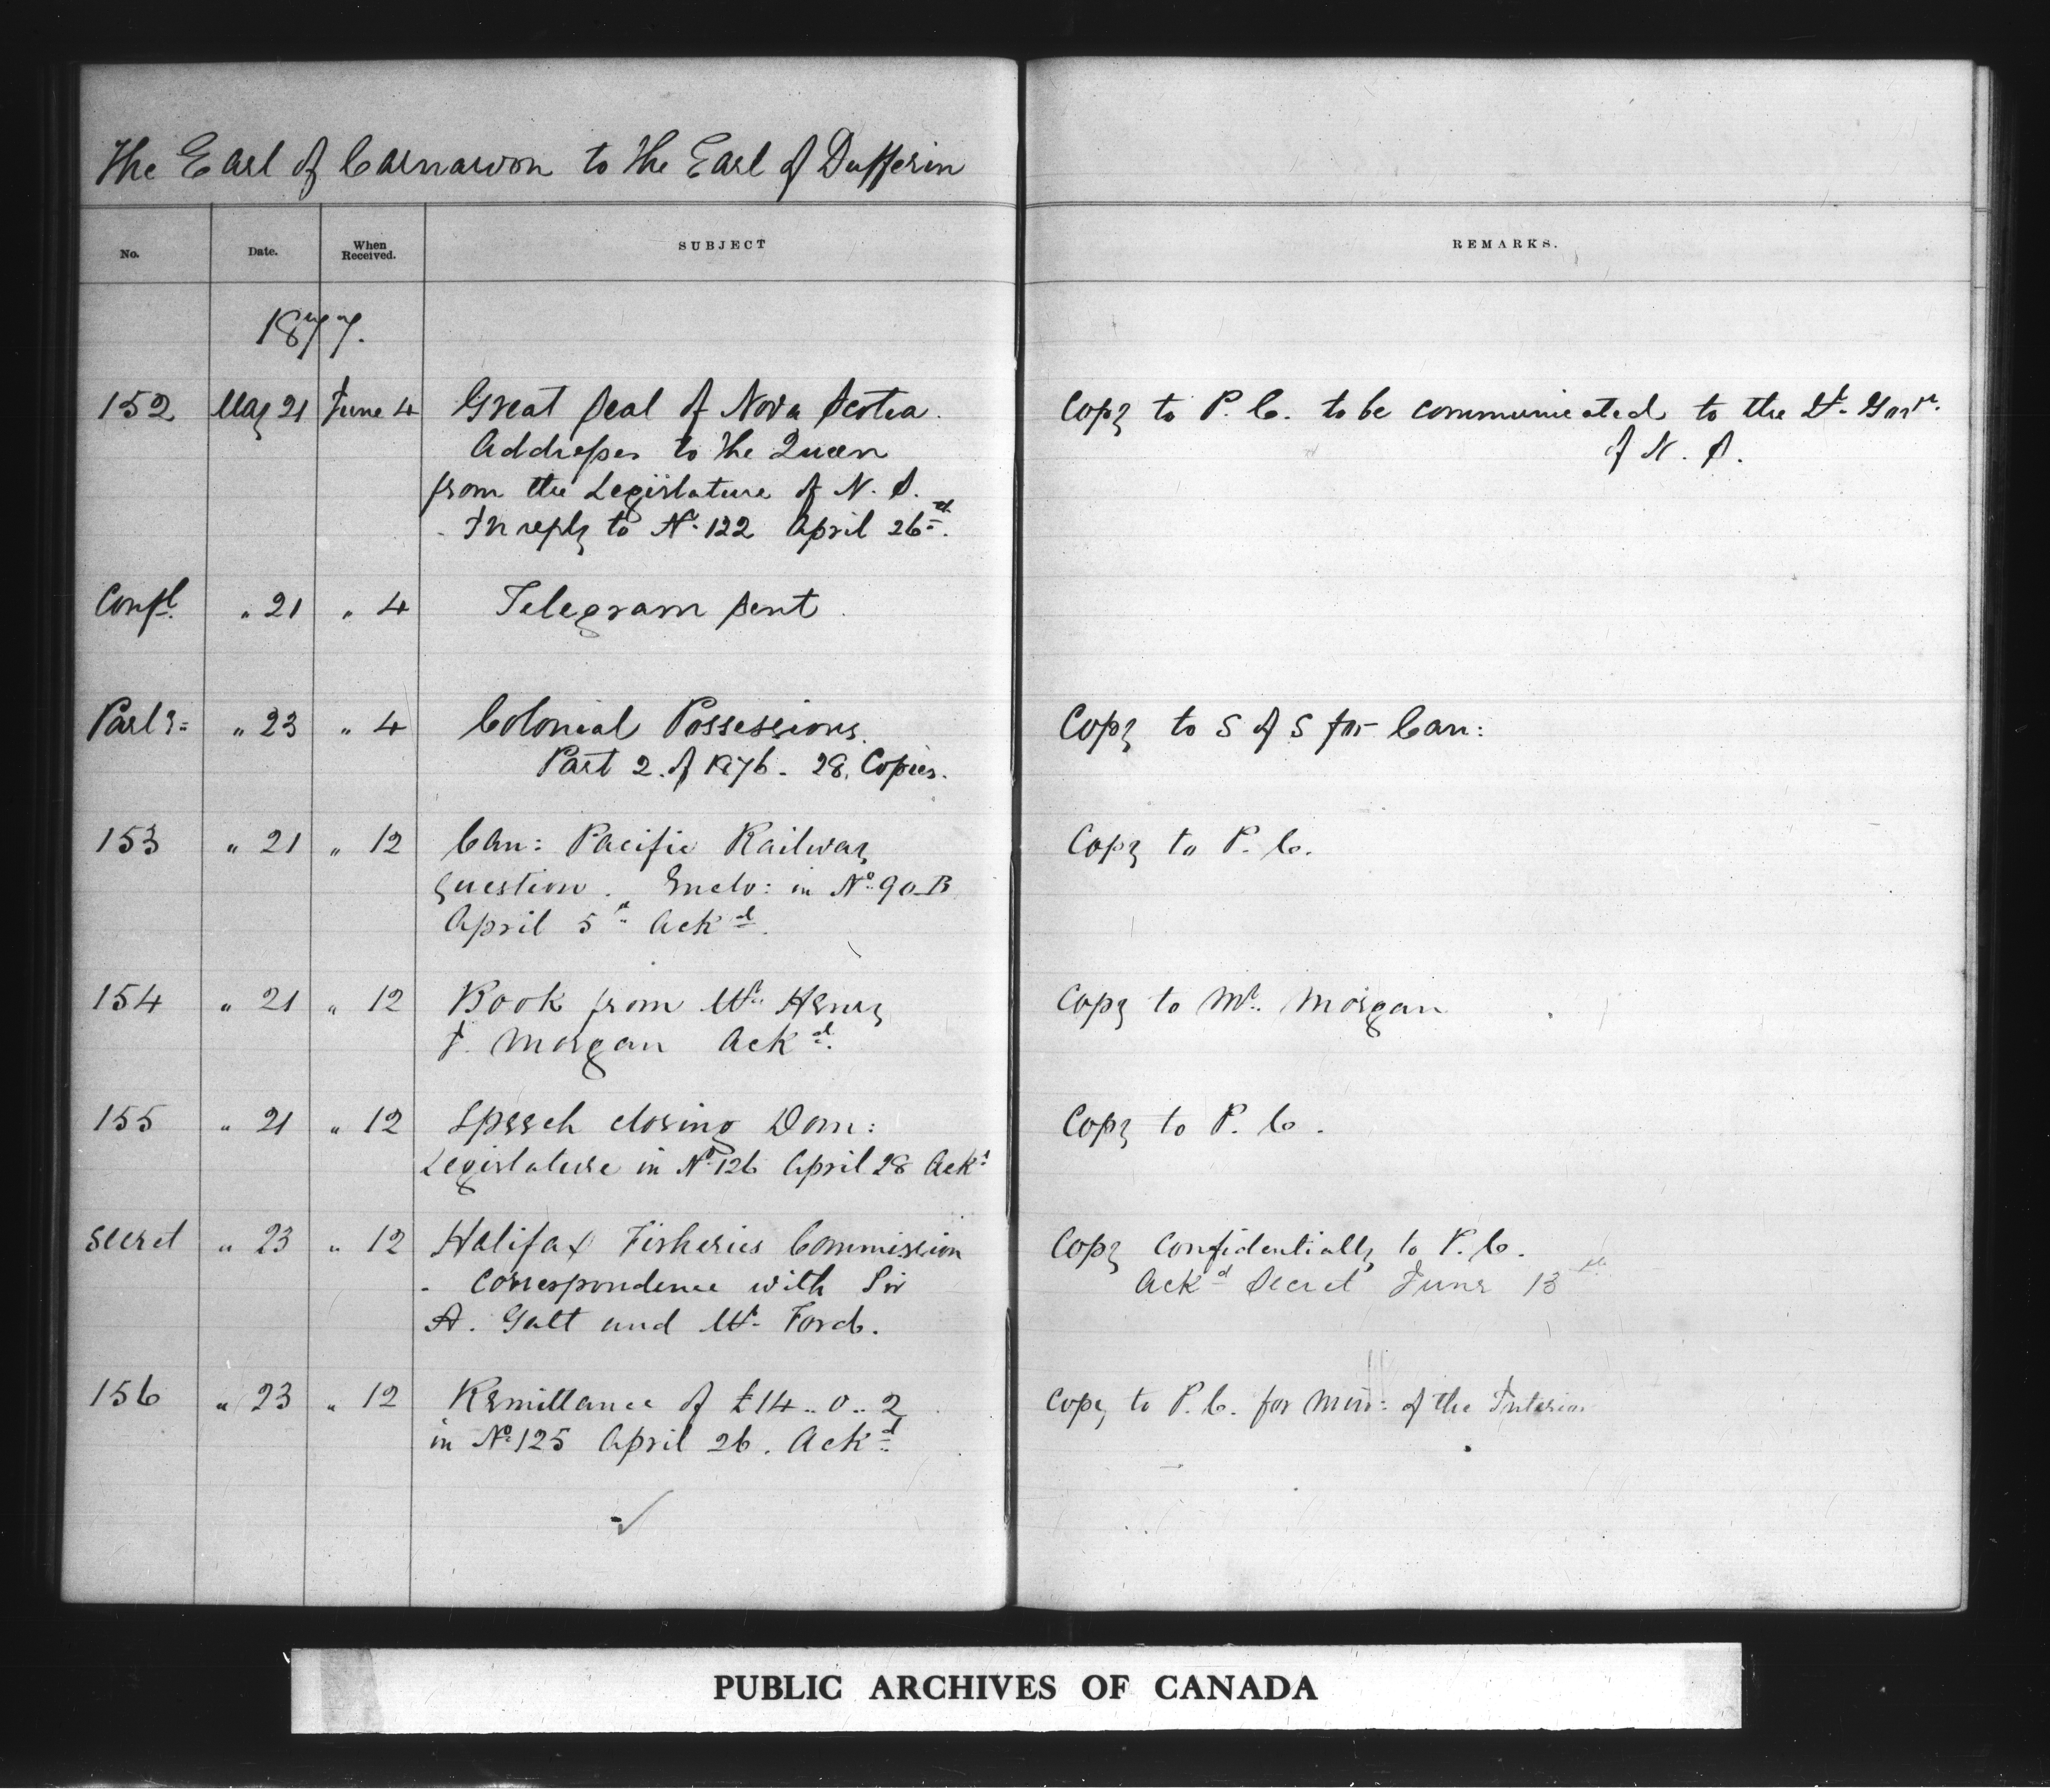 The Earl of Carnarvon to the Earl of Dufferin
No. Date. When Received. SUBJECT REMARKS.
1877.
152 May 21 June 4 Great Seal of Nova Scotia. Copy to P. C. to be communicated to the Lt. Govr.
Addresses to the Queen of N. S.
from the Legislature of N. S.
- In reply to No. 122 April 26th.
Confl. " 21 " 4 Telegram sent.
Parly= " 23 " 4 Colonial Possessions. Copy to S of S for Can:
Part 2. of 1876 - 28. Copies.
153 " 21 " 12 Can: Pacific Railway Copy to P. C.
question. Enclo: in No. 90-B
April 5th Ackd.
154 " 21 " 12 Book from Mr. Henry Copy to Mr. Morgan
J. Morgan Ackd.
155 " 21 " 12 Speech closing Dom: Copy to P. C.
Legislature in No. 126 April 28 Ackd.
Secret " 23 " 12 Halifax Fisheries Commission Copy confidentially to P. C.
- Correspondence with Sir Ackd Secret June 13th
A. Galt and Mr. Ford.
156 " 23 " 12 Remittance of £14.. 0.. 2 Copy to P. C. for Min: of the Interior
in No. 125 April 26. Ackd.
PUBLIC ARCHIVES OF CANADA